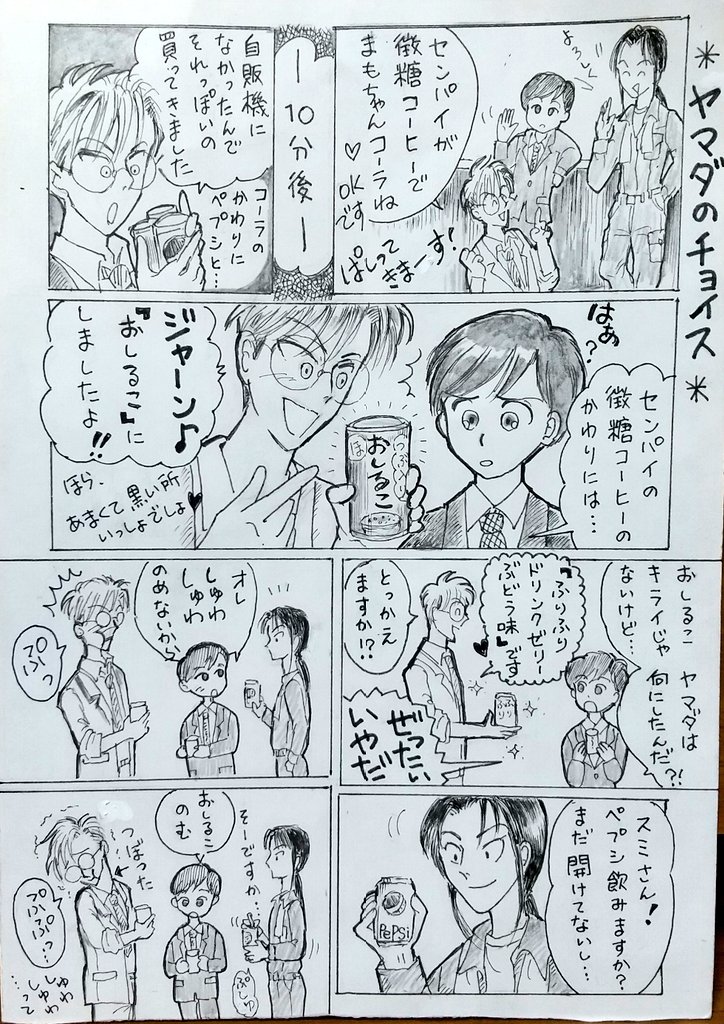 ＊ヤマダのチョイス＊
よろしく
センパイが
微糖コーヒーで
まもちゃんコーラね
♡
OK
です
ぱしって
きまーす!
ー10分後ー
自販機に
なかったんで
それっぽいの
買ってきました
コーラの
かわりに
ペプシと…
はぁ?
センパイの
微糖コーヒーの
かわりには…
つぶ入り
おしるこ
ジャーン♪
『おしるこ』に
しましたよ!!
ほら、
あまくて黒い所
いっしょでしょ♥
おしるこ
キライじゃ
ないけど…
ヤマダは
何にしたんだ?!
『ふりふり
ドリンクゼリー
ぶどう味』です
♥
ふり
ふり
とっかえ
ますか!?
ぜったい
いやだ
オレ
しゅわ
しゅわ
のめないから
ぷっ
スミさん!
ペプシ飲みますか?
まだ開けてないし…
PePSi
そーですか…
ぷしゅ
おしるこ
のむ
つぼった
ぷぷぷっ…
しゅわ
しゅわ
って…